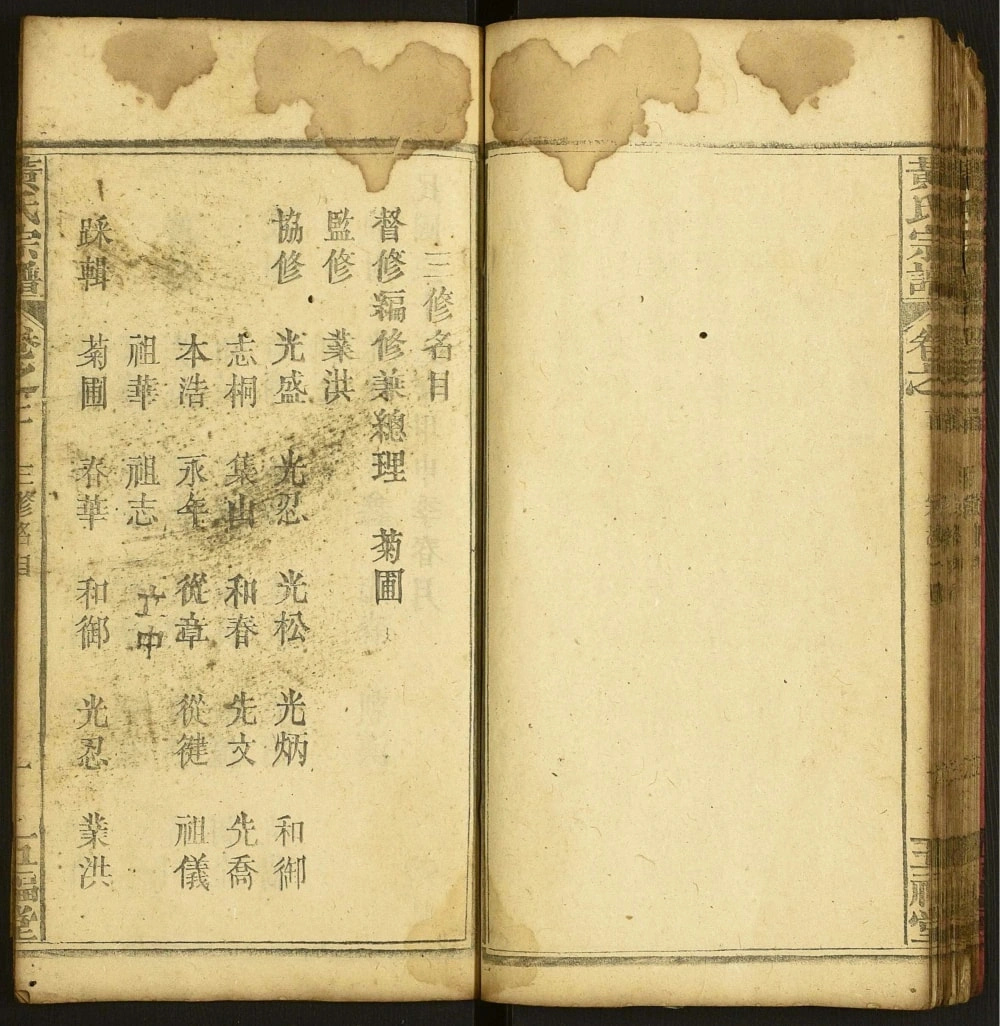 三修名目
督修編修兼總理 菊圃
監修 業洪
協修 光盛 光忍 光松 光炳 和御
志桐 集山 和春 先文 先喬
本浩 永年 從章 從健 祖儀
祖華 祖志 中
踩輯 菊圃 春華 和御 光忍 業洪
黃氏宗譜 卷之 三修名目 一 五福堂
黃氏宗譜 卷之 五福堂